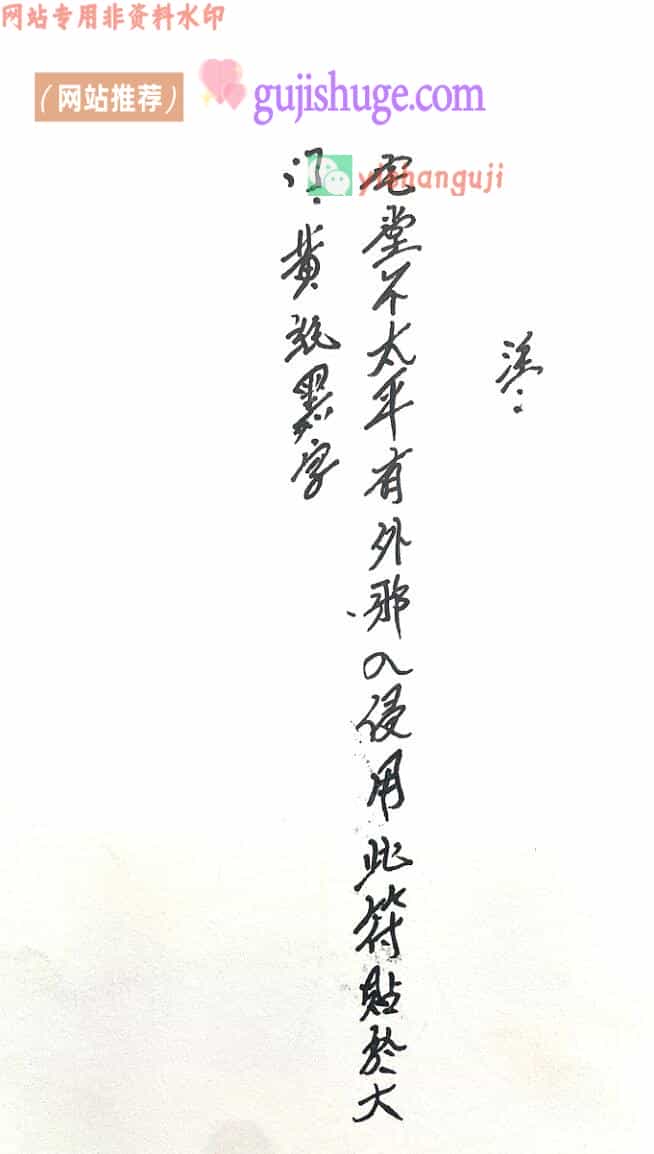 网站专用非资料水印
(网站推荐) gujishuge.com
yishanguji
注:
宅堂不太平有外邪入侵用此符貼於大
门:黄紙墨字